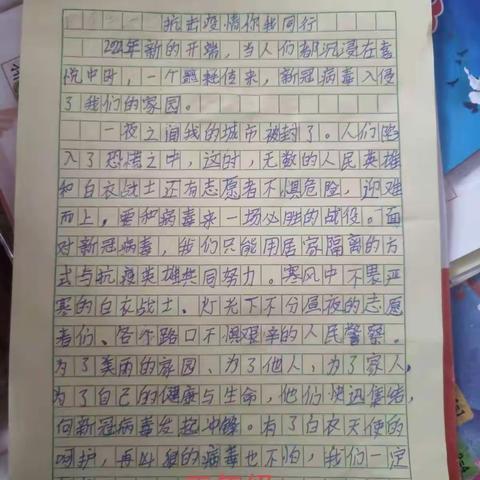 抗击疫情你我同行
2021年新的开端，当人们都沉浸在喜
悦中时，一个噩耗传来，新冠病毒入侵
了我们的家园。
一夜之间我的城市被封了。人们陷
入了恐慌之中，这时，无数的人民英雄
和白衣战士还有志愿者不惧危险，迎难
而上，要和病毒来一场必胜的战役。面
对新冠病毒，我们只能用居家隔离的方
式与抗疫英雄共同努力。寒风中不畏严
寒的白衣战士、灯光下不分昼夜的志愿
者们、各个路口不惧艰辛的人民警察。
为了美丽的家园、为了他人，为了家人，
为了自己的健康与生命，他们快迅集结，
向新冠病毒发起冲锋。有了白衣天使的
呵护，再凶狠的病毒也不怕，我们一定